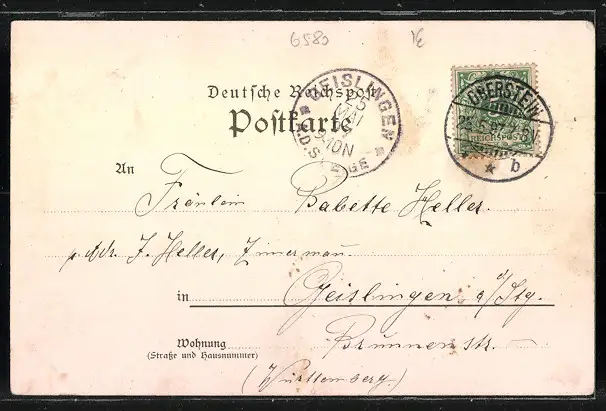 6580 1€
Deutsche Reichspost
Postkarte
GEISLINGEN
25
MAI
A.D. STEIGE
OBERSTEIN
REICHSPOST
* b
An Fräulein Babette Heller.
p. Adr. J. Heller, Zimmerman.
in Geislingen a/Stg.
Wohnung Brunnenstr.
(Straße und Hausnummer)
(Württemberg.)